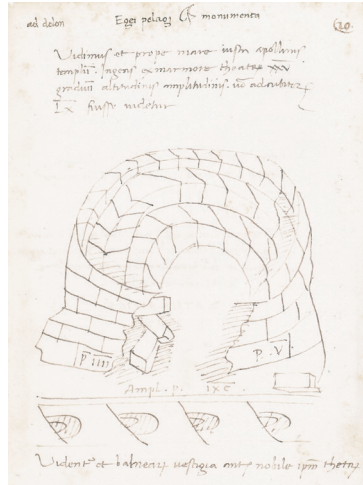 ad delon
Eggi pelagi monumenta
Vidimus et prope mare iuxta apollinis
templum. Ingens ex marmore theatrum XXXV
graduum altitudinis amplitudinis
IX fuisse videtur
P IIII
P. V
Ampl. P. IXC.
Videntur et balnearum vestigia ante nobile ipsum